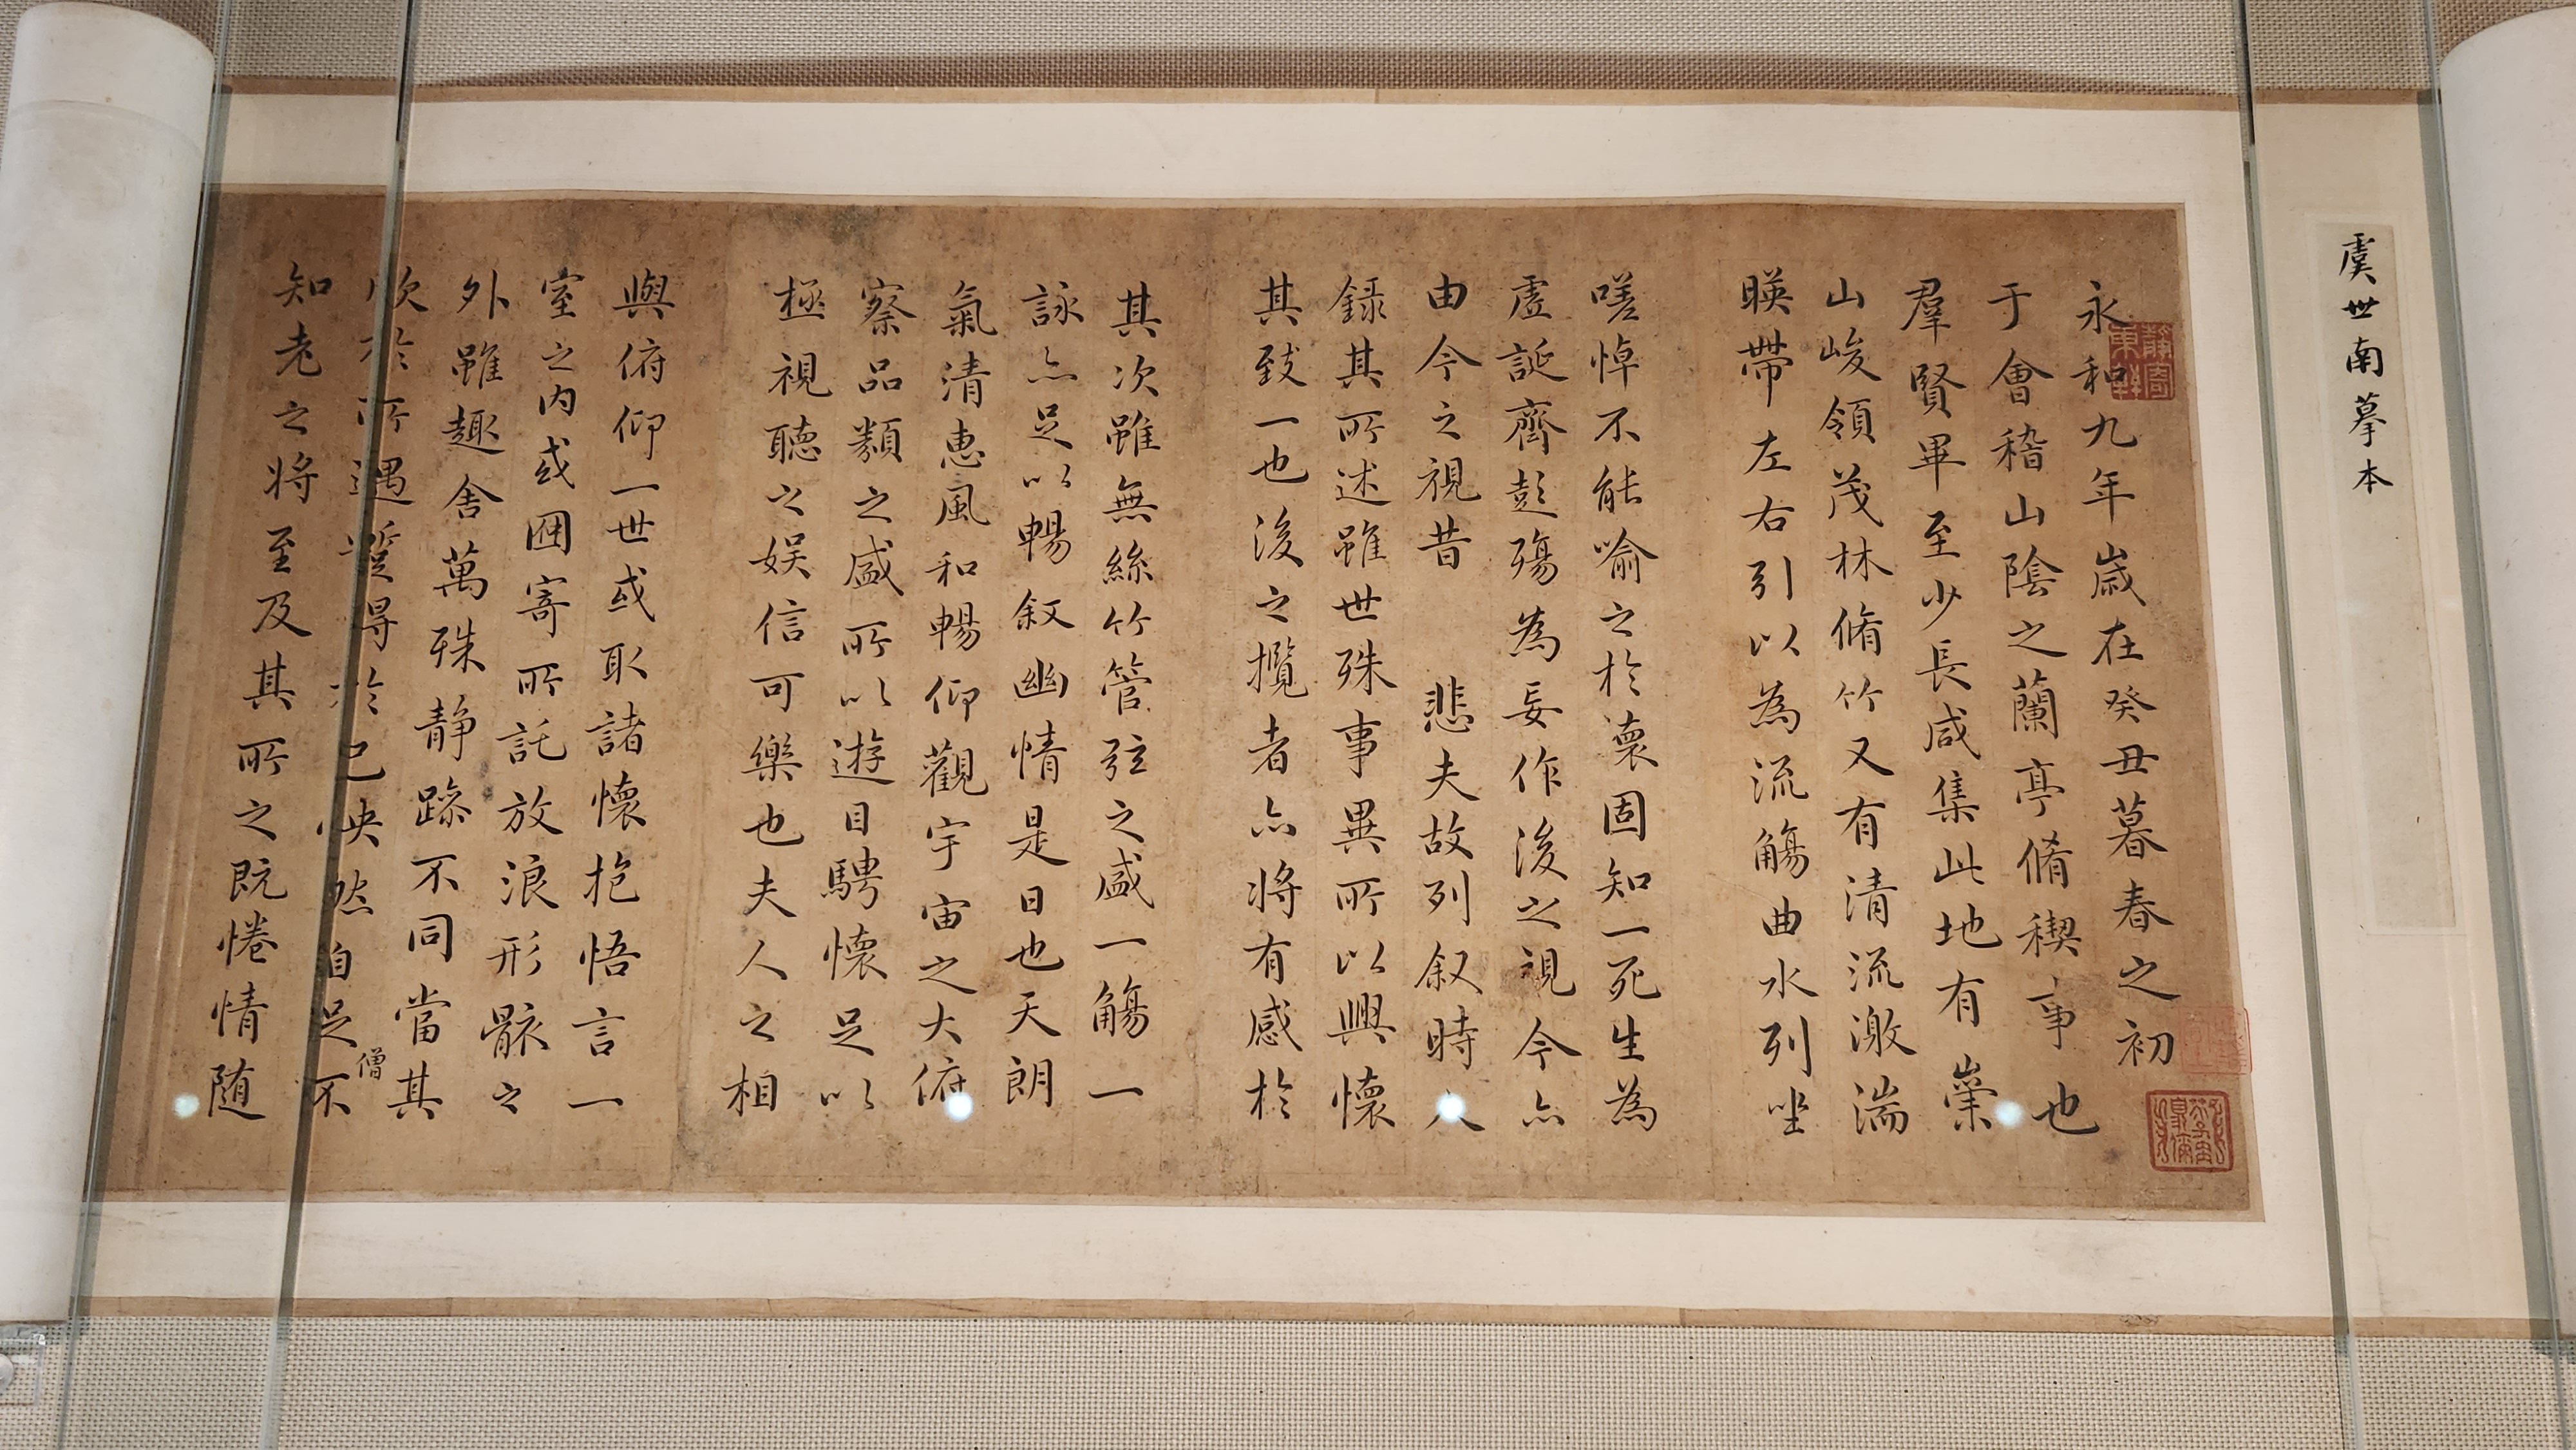 虞世南摹本
永和九年歳在癸丑暮春之初
于會稽山陰之蘭亭脩稧事也
羣賢畢至少長咸集此地有崇
山峻領茂林脩竹又有清流激湍
暎帶左右引以為流觴曲水列坐
嗟悼不能喻之於懷固知一死生為
虛誕齊彭殤為妄作後之視今亦
由今之視昔 悲夫故列叙時人
錄其所述雖世殊事異所以興懷
其致一也後之攬者亦将有感於
其次雖無絲竹管弦之盛一觴一
詠亦足以暢叙幽情是日也天朗
氣清惠風和暢仰觀宇宙之大俯
察品類之盛所以遊目騁懷足以
極視聽之娱信可樂也夫人之相
與俯仰一世或取諸懷抱悟言一
室之内或囙寄所託放浪形骸之
外雖趣舍萬殊静躁不同當其
僧
欣於所遇蹔得於己怏然自足不
知老之将至及其所之既惓情随